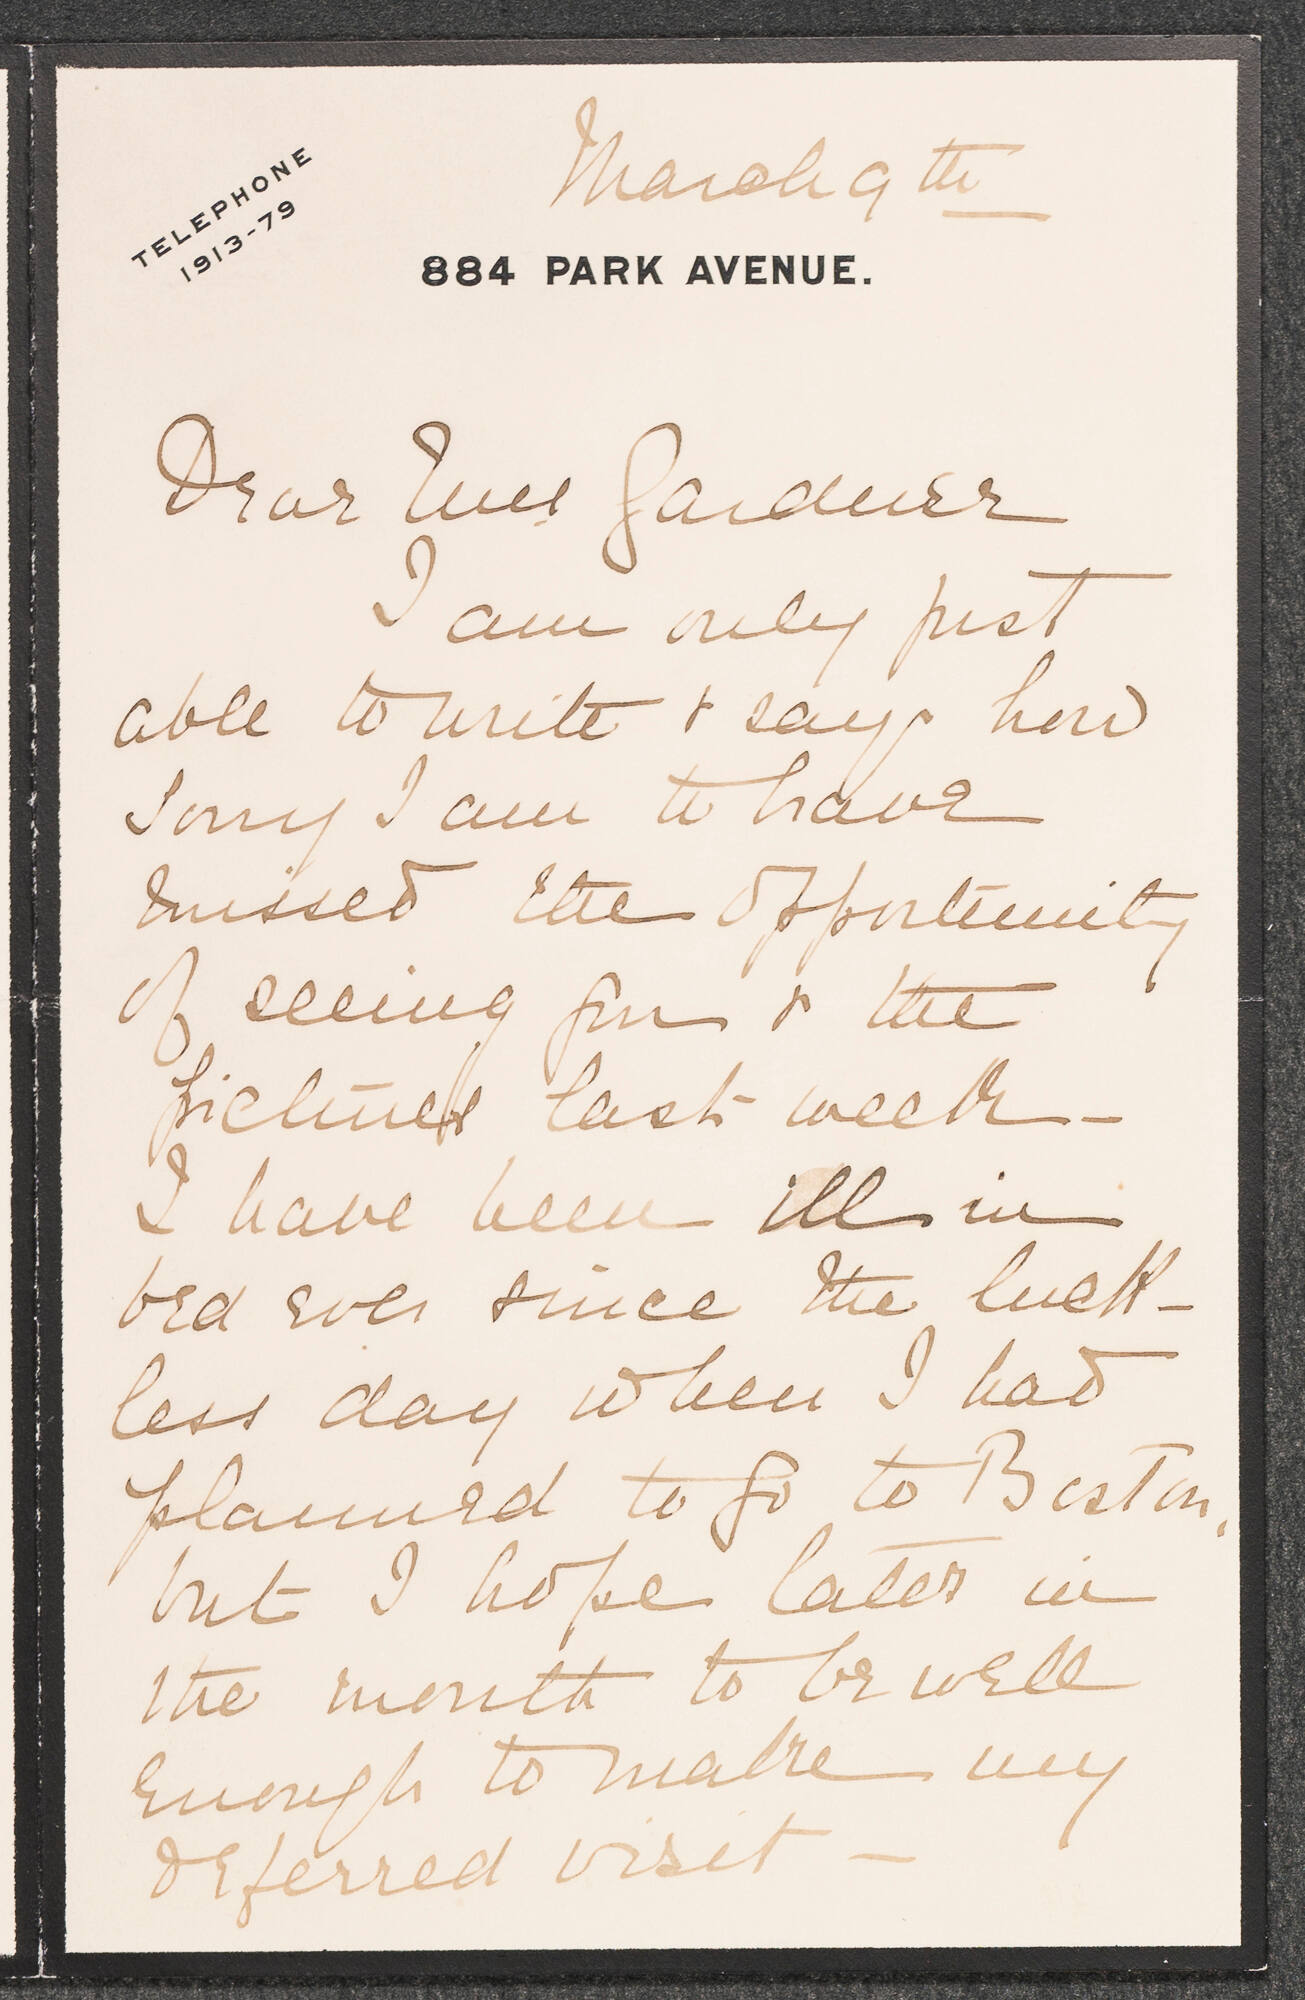 March 9th
TELEPHONE
1913-79
884 PARK AVENUE.
Dear Mrs Gardner
I am only just
able to write & say how
sorry I am to have
missed the opportunity
of seeing you & the
pictures last week -
I have been ill in
bed ever since the luck-
less day when I had
planned to go to Boston,
but I hope later in
the month to be well
enough to make my
deferred visit -